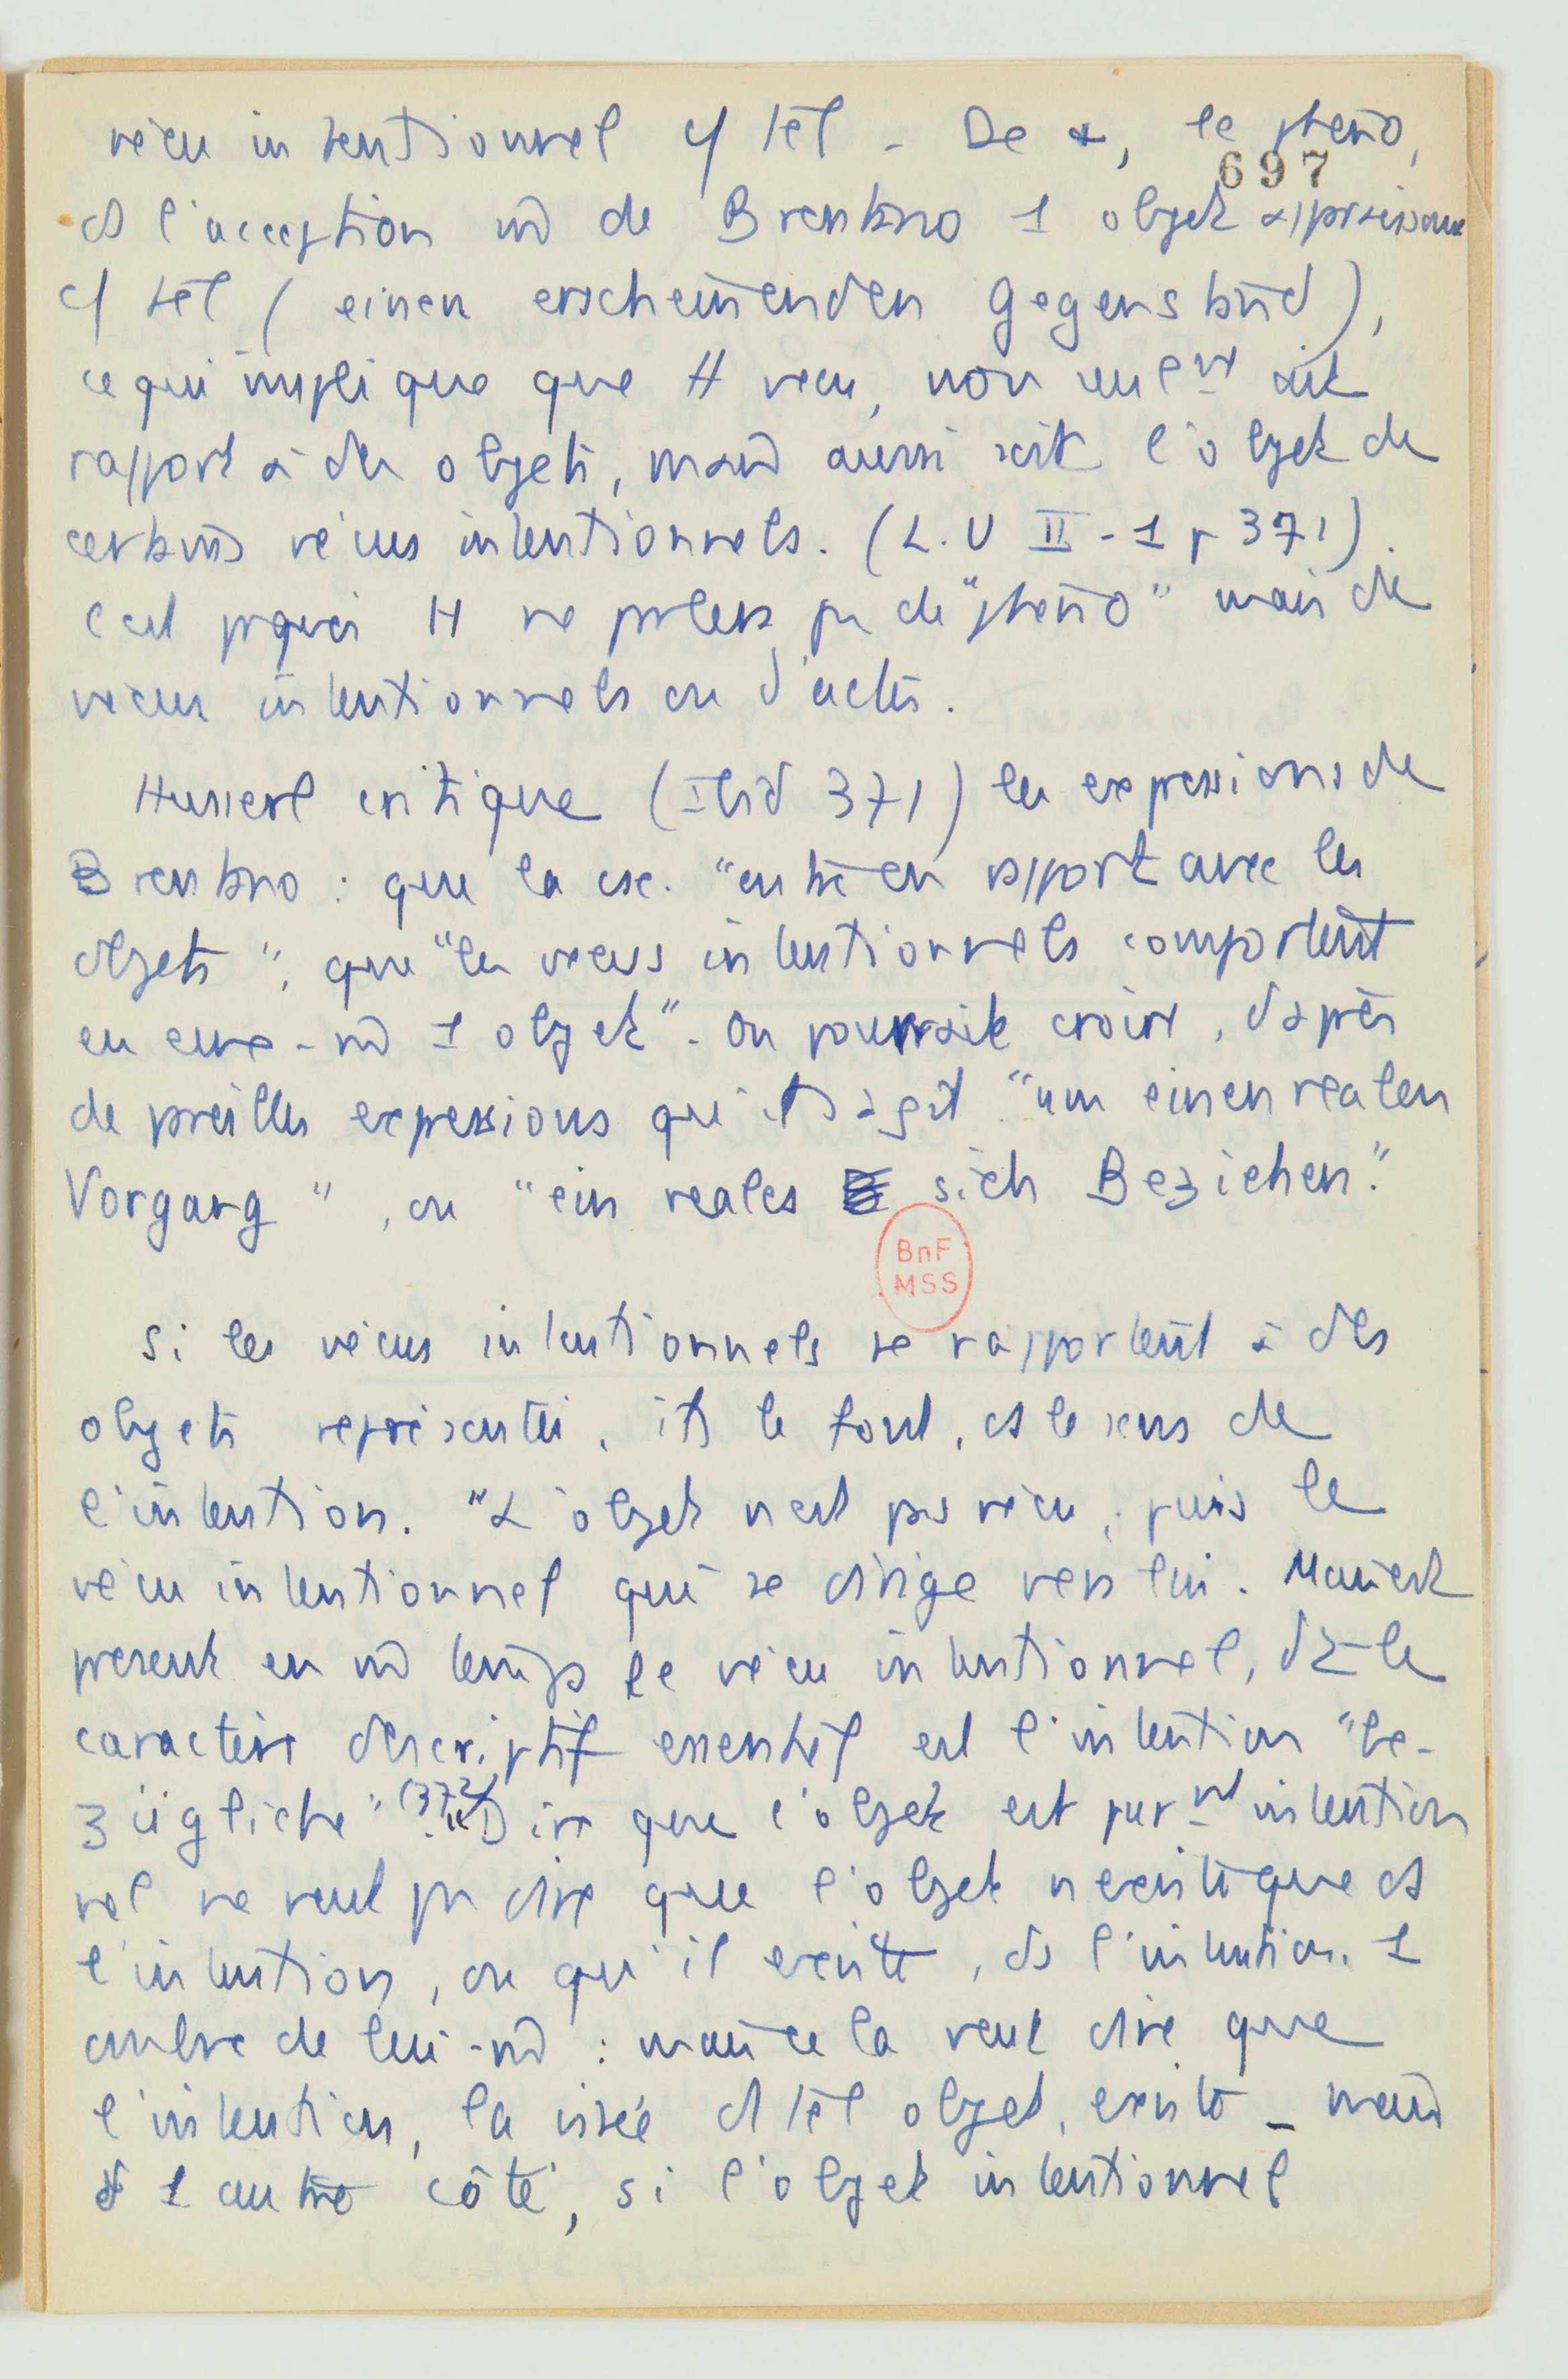 vécu intentionnel c/ tel - De +, le pheno,
697
ds l'acception m̂ de Brentano 1 objet apparaissant
c/ tel (einen erscheinenden Gegenstand),
ce qui implique que tt vécu, non seulemt ait
rapport à des objets, mais aussi soit l'objet de
certains vécus intentionnels. (L.U II-1 p 371).
C'est pquoi H ne parlera pas de "pheno" mais de
vécus intentionnels ou d'actes.
Husserl critique (Ibid 371) les expressions de
Brentano : que la csc. "entre en rapport avec les
objets", que "les vécus intentionnels comportent
en eux-m̂ 1 objet". On pourrait croire, d'après
de pareilles expressions qu'il s'agit "um einen realen
Vorgang", ou "ein reales sich Beziehen."
BnF
MSS
Si les vécus intentionnels se rapportent à des
objets représentés, ils le font, ds le sens de
l'intention. "L'objet n'est pas vécu, puis le
vécu intentionnel qui se dirige vers lui. Mais est
présent en m̂ temps le vécu intentionnel, dt le
caractère descriptif essentiel est l'intention "be-
zügliche" (372). Dire que l'objet est purmt intention
nel ne veut pas dire que l'objet n'existe que ds
l'intention, ou qu'il existe, ds l'intention. 1
ombre de lui-m̂ : mais cela veut dire que
l'intention, la visée d'1 tel objet, existe - mais
d'1 autre côté, si l'objet intentionnel